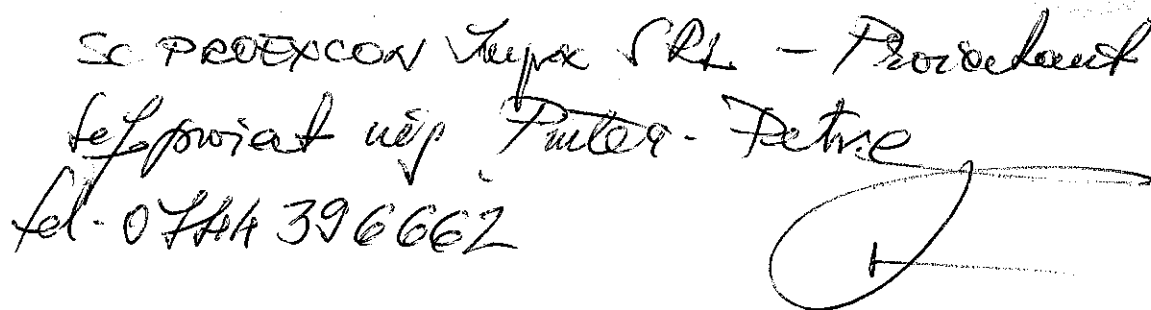 SC PROEXCON Impex SRL - Proiectant
sef proiect ing Pinter - Petre
tel - 0744 396662